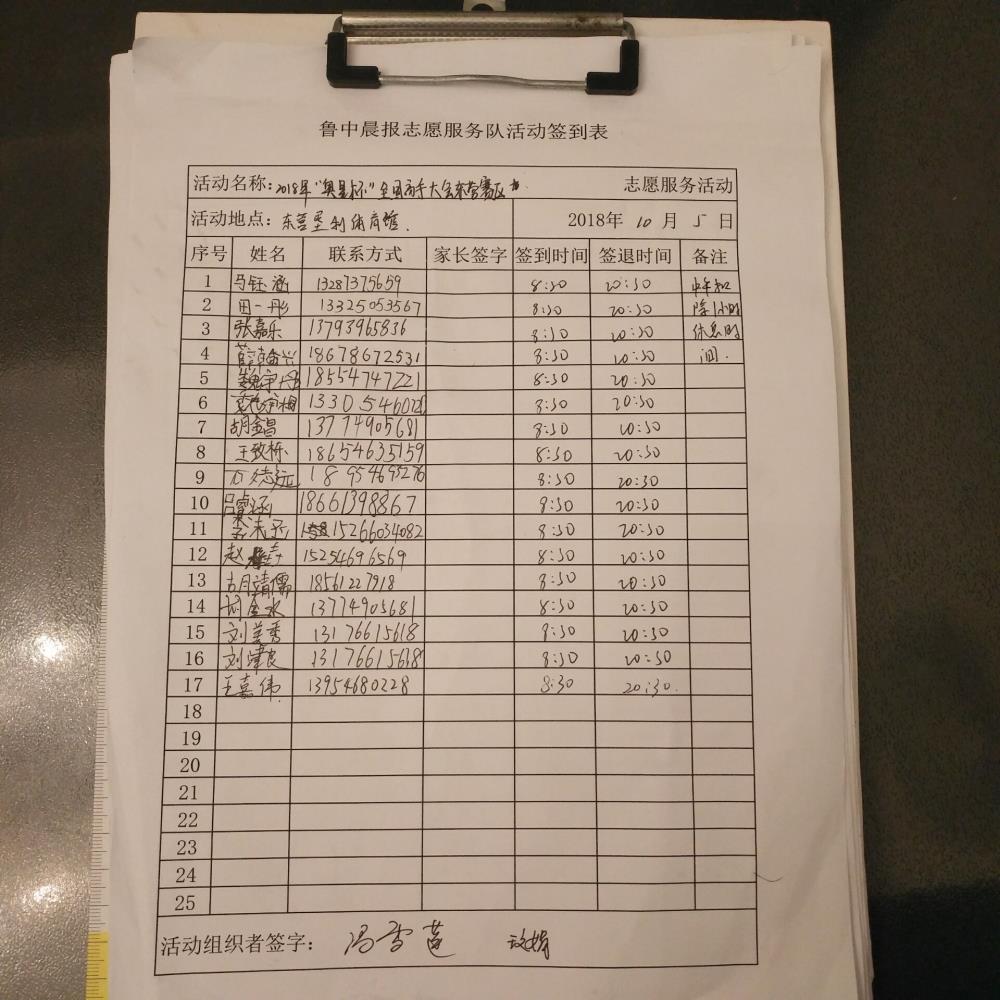 鲁中晨报志愿服务队活动签到表
活动名称: 2018年"奥星杯"全国高手大会东营赛区 志愿服务活动
活动地点: 东营垦利体育馆. 2018年 10 月 5 日
序号 姓名 联系方式 家长签字 签到时间 签退时间 备注
1 马钰涵 13287375659 8:30 20:30 中午扣
2 田一彤 13325053567 8:30 20:30 除1小时
3 张嘉乐 13793965836 8:30 20:30 休息时
4 薛翰兴 18678672531 8:30 20:30 间.
5 18554747221 8:30 20:30
6 8:30 20:30
7 胡金昌 13774905681 8:30 20:30
8 王致栋 18654635159 8:30 20:30
9 18954693276 8:30 20:30
10 吕睿涵 18661398867 8:30 20:30
11 15266034082 8:30 20:30
12 赵 15254696569 8:30 20:30
13 胡靖儒 18561227918 8:30 20:30
14 13774905681 8:30 20:30
15 刘美秀 13176615618 8:30 20:30
16 刘 良 13176615618 8:30 20:30
17 王嘉伟 13954680228 8:30 20:30.
18
19
20
21
22
23
24
25
活动组织者签字: 冯雪